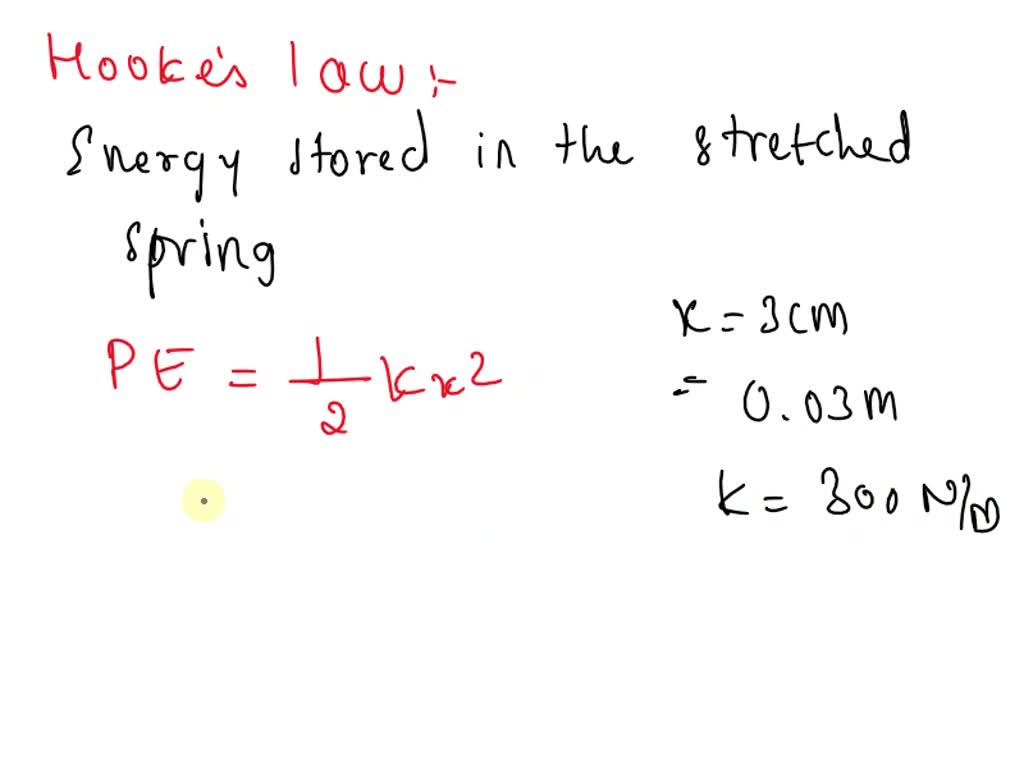 Hooke's law :-
Energy stored in the stretched
spring
PE = 1/2 kx2
x = 3cm
= 0.03m
k = 300 N/m